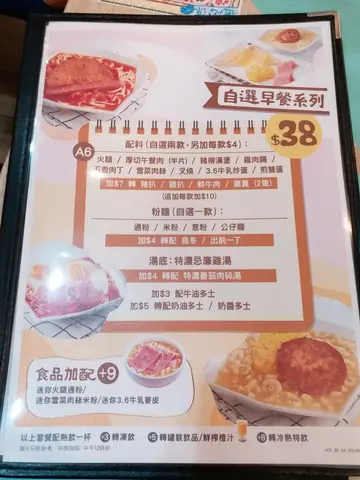 自選早餐系列
$38
A6
配料(自選兩款,另加每款$4):
火腿 / 厚切午餐肉(半片) / 豬柳漢堡 / 雞肉腸 /
五香肉丁 / 雪菜肉絲 / 叉燒 / 3.6牛乳炒蛋 / 煎雙蛋
加$7 轉 豬扒 / 雞扒 / 鮮牛肉 / 雞翼(2隻)
(追加每款加$10)
粉麵(自選一款):
通粉 / 米粉 / 意粉 / 公仔麵
加$4 轉配 烏冬 / 出前一丁
湯底:特濃忌廉雞湯
加$4 轉配 特濃番茄肉碎湯
加$3 配牛油多士
加$5 轉配奶油多士 / 奶醬多士
食品加配+9
迷你火腿通粉/
迷你雪菜肉絲米粉/迷你3.6牛乳麥皮
以上套餐配熱飲一杯 +3轉凍飲 +6轉罐裝飲品/鮮榨橙汁 +8轉冷熱特飲